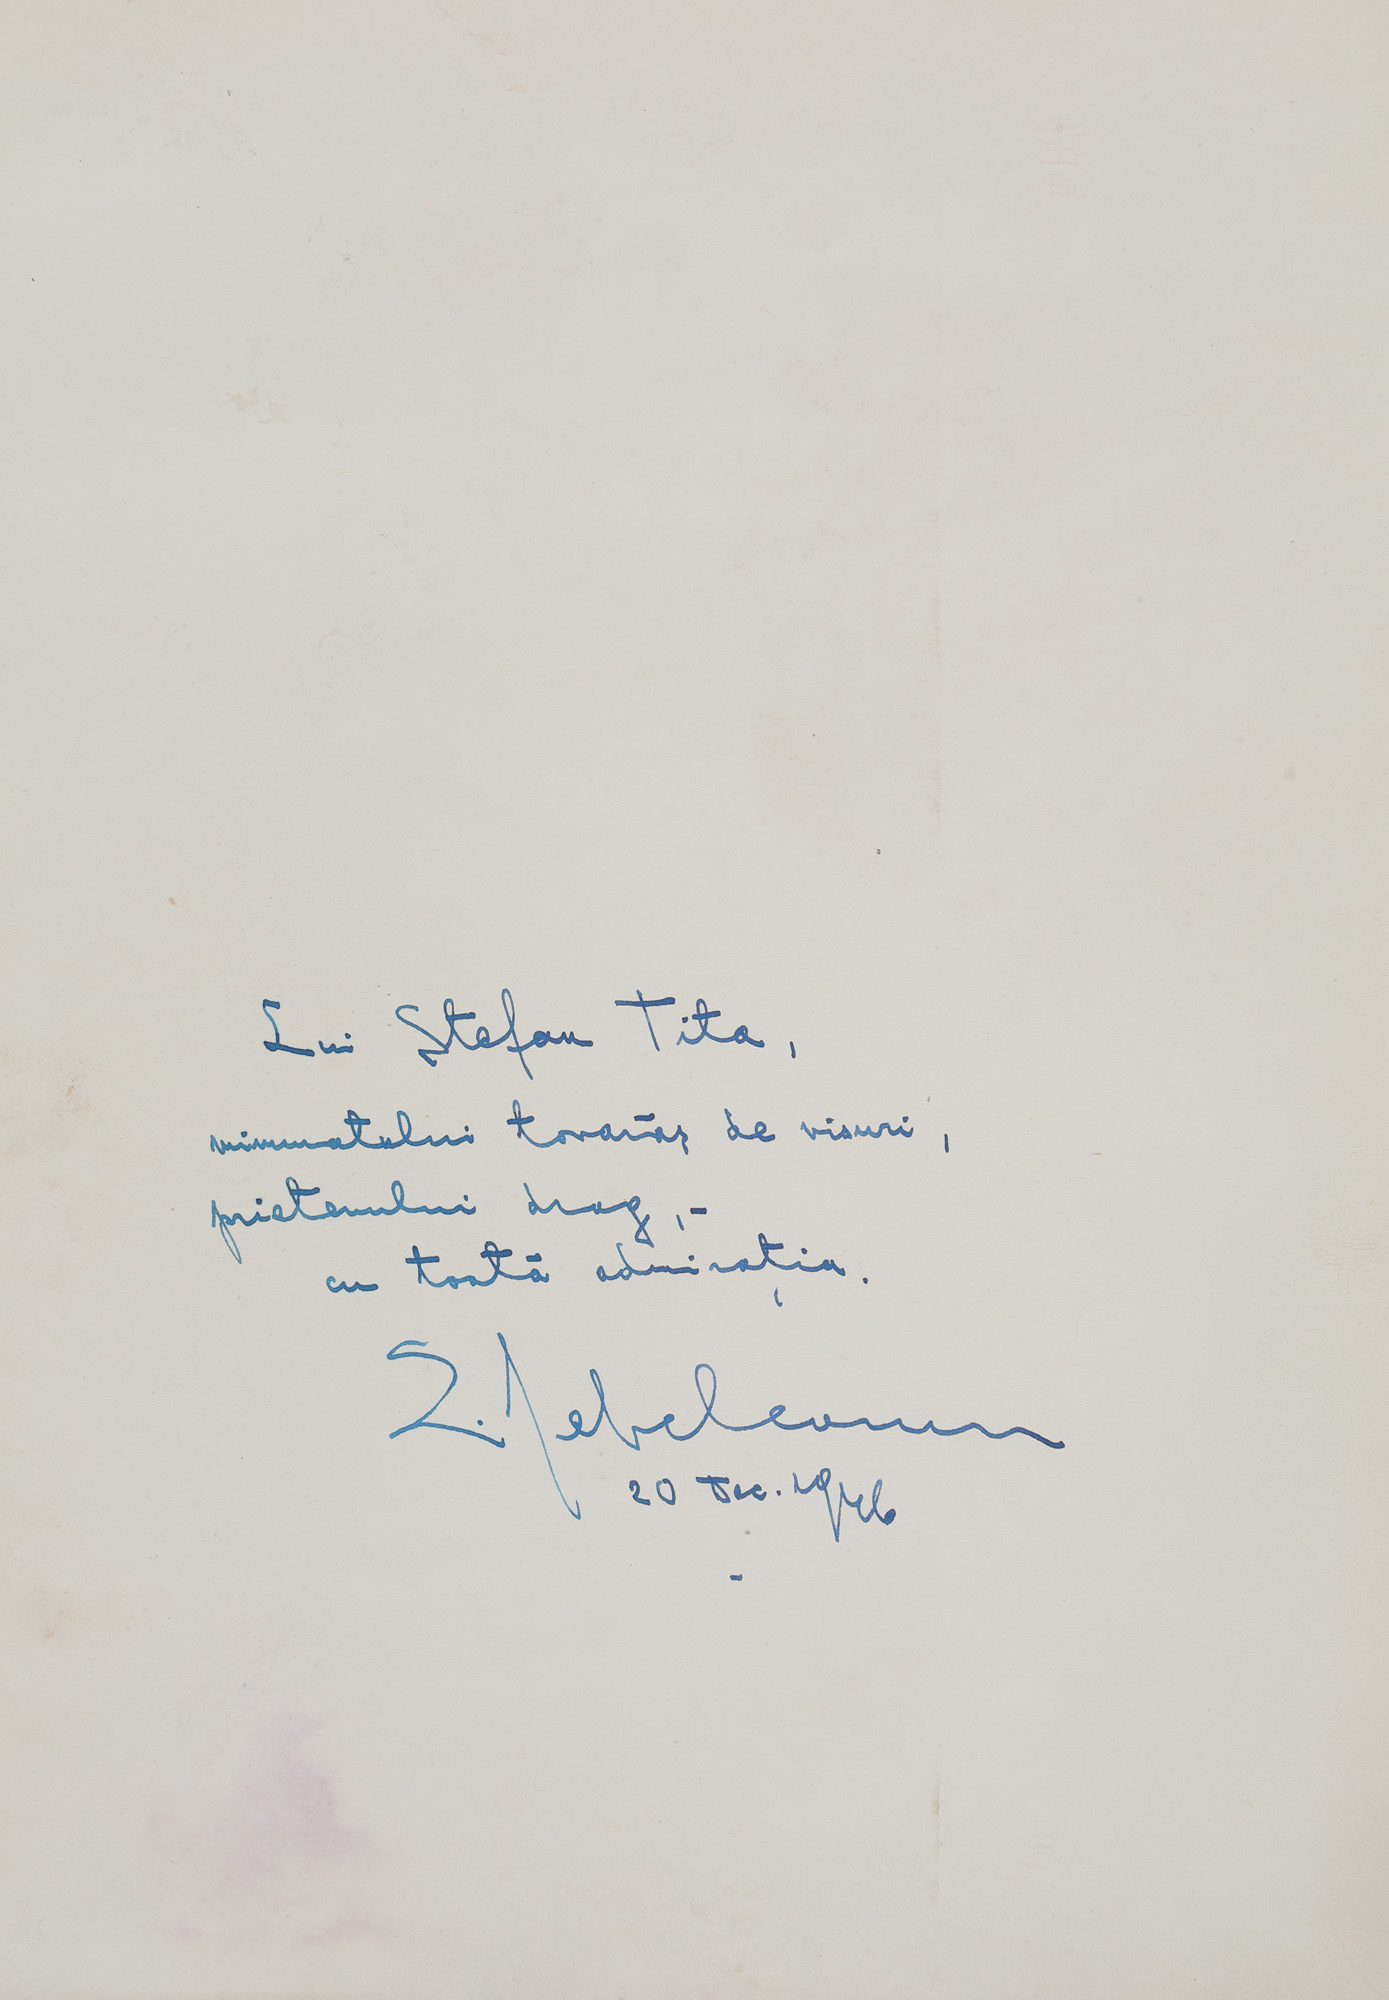 Lui Ștefan Tita,
minunatului tovarăș de visuri,
prietenului drag,-
cu toată admirația.
E. Jebeleanu
20 Dec. 1946
-